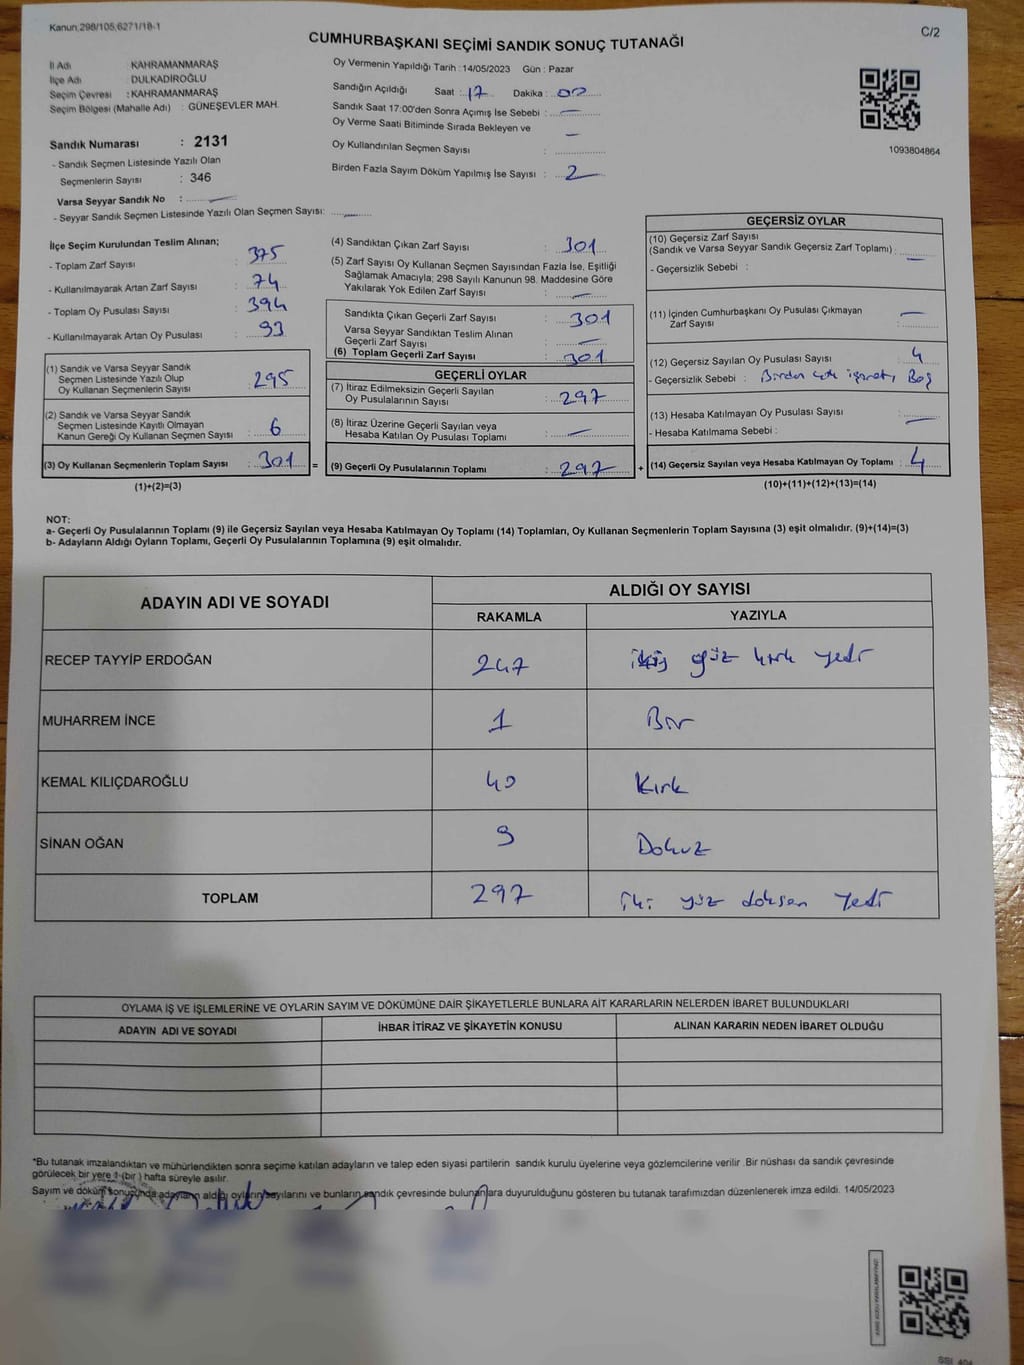 Kanun,298/105,6271/18-1
C/2
CUMHURBAŞKANI SEÇİMİ SANDIK SONUÇ TUTANAĞI
İl Adı : KAHRAMANMARAŞ
İlçe Adı : DULKADİROĞLU
Seçim Çevresi : KAHRAMANMARAŞ
Seçim Bölgesi (Mahalle Adı) : GÜNEŞEVLER MAH.
Sandık Numarası : 2131
- Sandık Seçmen Listesinde Yazılı Olan
Seçmenlerin Sayısı : 346
Varsa Seyyar Sandık No : —
- Seyyar Sandık Seçmen Listesinde Yazılı Olan Seçmen Sayısı: —
Oy Vermenin Yapıldığı Tarih : 14/05/2023 Gün : Pazar
Sandığın Açıldığı Saat : 17 Dakika : 00
Sandık Saat 17:00'den Sonra Açımış İse Sebebi : —
Oy Verme Saati Bitiminde Sırada Bekleyen ve —
Oy Kullandırılan Seçmen Sayısı :
Birden Fazla Sayım Döküm Yapılmış İse Sayısı : 2
1093804864
İlçe Seçim Kurulundan Teslim Alınan;
- Toplam Zarf Sayısı : 375
- Kullanılmayarak Artan Zarf Sayısı : 74
- Toplam Oy Pusulası Sayısı : 394
- Kullanılmayarak Artan Oy Pusulası : 93
(1) Sandık ve Varsa Seyyar Sandık
Seçmen Listesinde Yazılı Olup
Oy Kullanan Seçmenlerin Sayısı : 295
(2) Sandık ve Varsa Seyyar Sandık
Seçmen Listesinde Kayıtlı Olmayan
Kanun Gereği Oy Kullanan Seçmen Sayısı : 6
(3) Oy Kullanan Seçmenlerin Toplam Sayısı : 301 =
(1)+(2)=(3)
(4) Sandıktan Çıkan Zarf Sayısı : 301
(5) Zarf Sayısı Oy Kullanan Seçmen Sayısından Fazla İse, Eşitliği
Sağlamak Amacıyla; 298 Sayılı Kanunun 98. Maddesine Göre
Yakılarak Yok Edilen Zarf Sayısı : —
Sandıkta Çıkan Geçerli Zarf Sayısı : 301
Varsa Seyyar Sandıktan Teslim Alınan
Geçerli Zarf Sayısı : —
(6) Toplam Geçerli Zarf Sayısı : 301
GEÇERLİ OYLAR
(7) İtiraz Edilmeksizin Geçerli Sayılan
Oy Pusulalarının Sayısı : 297
(8) İtiraz Üzerine Geçerli Sayılan veya
Hesaba Katılan Oy Pusulası Toplamı : —
(9) Geçerli Oy Pusulalarının Toplamı : 297 +
GEÇERSİZ OYLAR
(10) Geçersiz Zarf Sayısı
(Sandık ve Varsa Seyyar Sandık Geçersiz Zarf Toplamı) : —
- Geçersizlik Sebebi :
(11) İçinden Cumhurbaşkanı Oy Pusulası Çıkmayan —
Zarf Sayısı :
(12) Geçersiz Sayılan Oy Pusulası Sayısı : 4
- Geçersizlik Sebebi : Birden çok işaret, Boş
(13) Hesaba Katılmayan Oy Pusulası Sayısı : —
- Hesaba Katılmama Sebebi :
(14) Geçersiz Sayılan veya Hesaba Katılmayan Oy Toplamı : 4
(10)+(11)+(12)+(13)=(14)
NOT:
a- Geçerli Oy Pusulalarının Toplamı (9) ile Geçersiz Sayılan veya Hesaba Katılmayan Oy Toplamı (14) Toplamları, Oy Kullanan Seçmenlerin Toplam Sayısına (3) eşit olmalıdır. (9)+(14)=(3)
b- Adayların Aldığı Oyların Toplamı, Geçerli Oy Pusulalarının Toplamına (9) eşit olmalıdır.
ADAYIN ADI VE SOYADI
ALDIĞI OY SAYISI
RAKAMLA YAZIYLA
RECEP TAYYİP ERDOĞAN 247 yüz kırk yedi
MUHARREM İNCE 1 Bir
KEMAL KILIÇDAROĞLU 40 Kırk
SİNAN OĞAN 9 Dokuz
TOPLAM 297 iki yüz doksan Yedi
OYLAMA İŞ VE İŞLEMLERİNE VE OYLARIN SAYIM VE DÖKÜMÜNE DAİR ŞİKAYETLERLE BUNLARA AİT KARARLARIN NELERDEN İBARET BULUNDUKLARI
ADAYIN ADI VE SOYADI İHBAR İTİRAZ VE ŞİKAYETİN KONUSU ALINAN KARARIN NEDEN İBARET OLDUĞU
*Bu tutanak imzalandıktan ve mühürlendikten sonra seçime katılan adayların ve talep eden siyasi partilerin sandık kurulu üyelerine veya gözlemcilerine verilir .Bir nüshası da sandık çevresinde
görülecek bir yere 1-(bir ) hafta süreyle asılır.
Sayım ve döküm sonucunda adayların aldığı oyların sayılarını ve bunların sandık çevresinde bulunanlara duyurulduğunu gösteren bu tutanak tarafımızdan düzenlenerek imza edildi. 14/05/2023